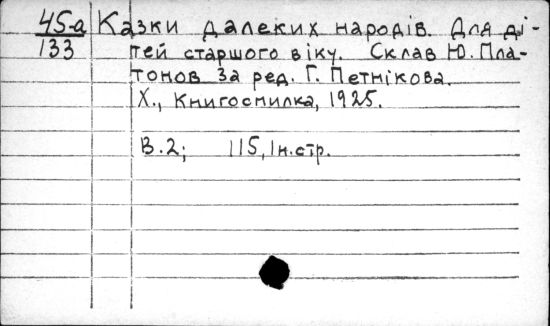 45-а Казки далеких народів. Для ді-
133 тей старшого віку. Склав Ю. Пла-
тонов За ред. Г. Петнікова.
Х., Книгоспилка, 1925.
В.2; 115, Ін.стр.